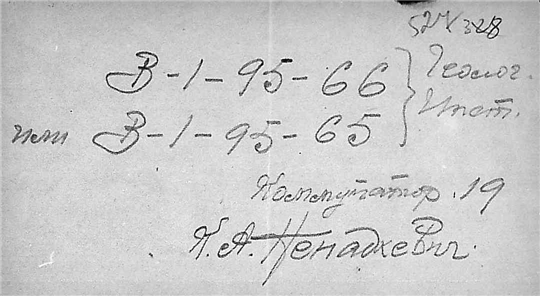 524/328
В-1-95-66 } Геолог.
или В-1-95-65 } Инст.
Коммутатор. 19
К.А. Ненадкевич.